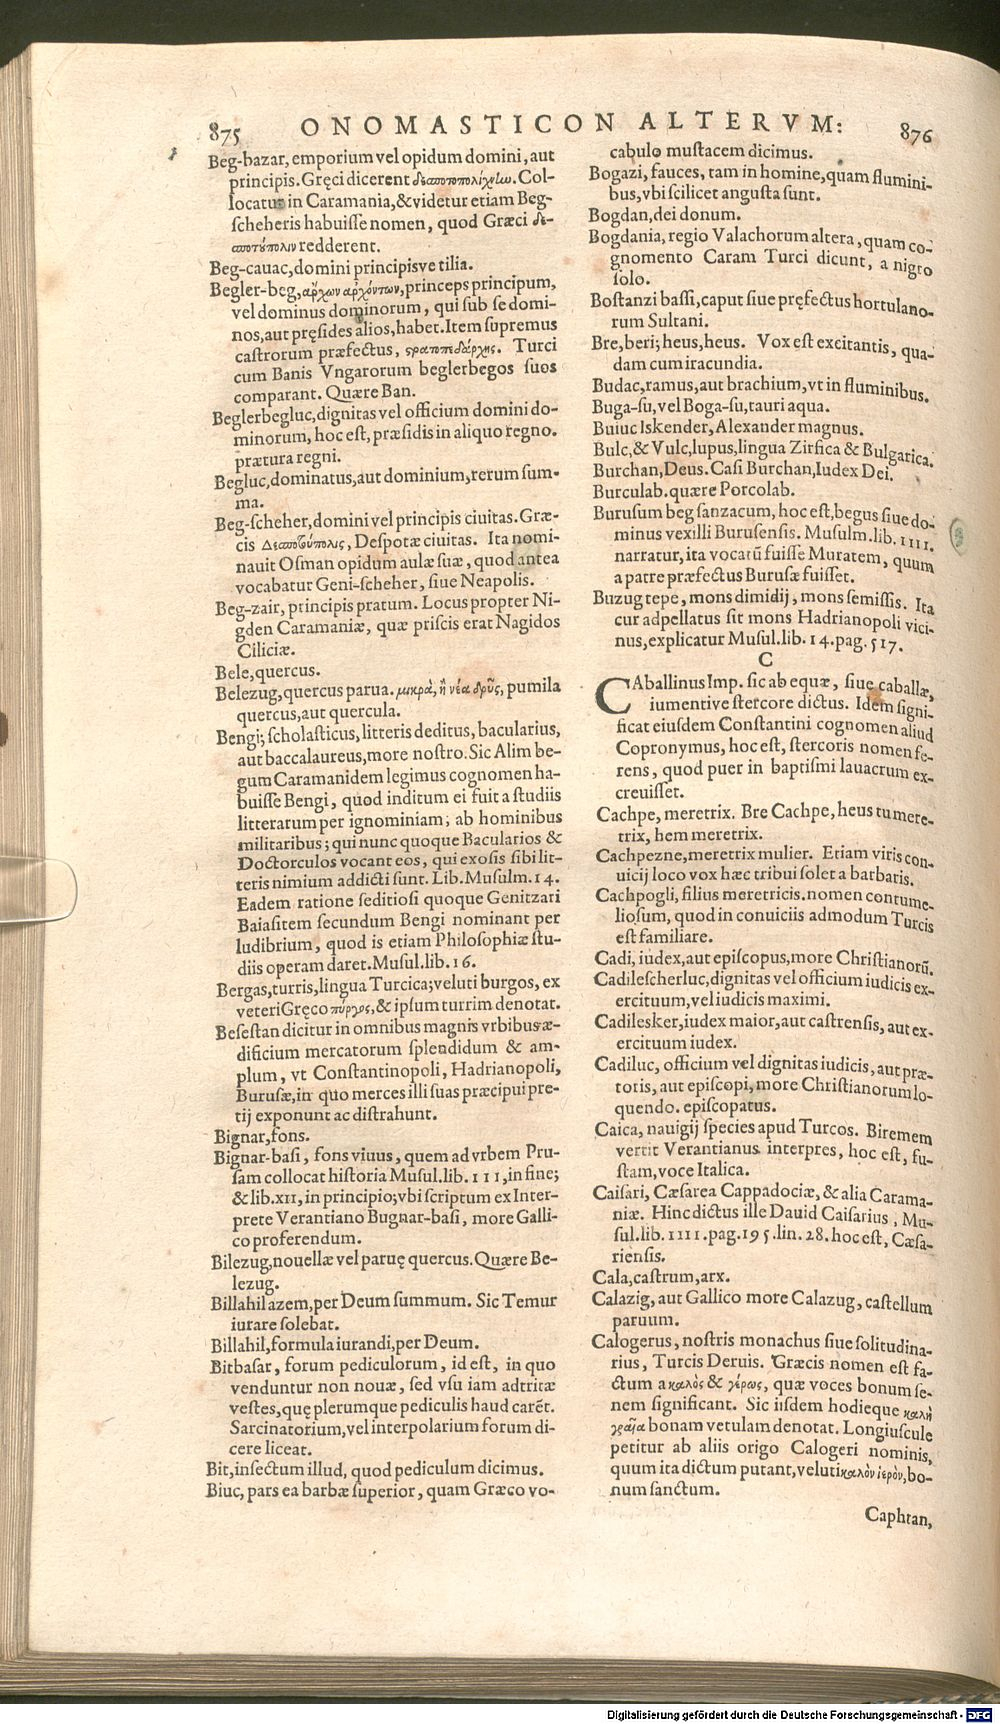 875 ONOMASTICON ALTERVM: 876
Beg-bazar, emporium vel opidum domini, aut
principis. Gręci dicerent δεσποτοπολίχνιον. Col-
locatur in Caramania, & videtur etiam Beg-
ſcheheris habuiſſe nomen, quod Græci δε-
σποτόπολιν redderent.
Beg-cauac, domini principisve tilia.
Begler-beg, ἄρχων ἀρχόντων, princeps principum,
vel dominus dominorum, qui ſub ſe domi-
nos, aut pręſides alios, habet. Item ſupremus
caſtrorum præfectus, ςρατοπεδάρχης. Turci
cum Banis Vngarorum beglerbegos ſuos
comparant. Quære Ban.
Beglerbegluc, dignitas vel officium domini do-
minorum, hoc eſt, præſidis in aliquo regno.
prætura regni.
Begluc, dominatus, aut dominium, rerum ſum-
ma.
Beg-ſcheher, domini vel principis ciuitas. Græ-
cis Δεσποτόπολις, Deſpotæ ciuitas. Ita nomi-
nauit Oſman opidum aulæ ſuæ, quod antea
vocabatur Geni-ſcheher, ſiue Neapolis.
Beg-zair, principis pratum. Locus propter Ni-
gden Caramaniæ, quæ priſcis erat Nagidos
Ciliciæ.
Bele, quercus.
Belezug, quercus parua. μικρὰ, ἢ νέα δρῦς, pumila
quercus, aut quercula.
Bengi, ſcholaſticus, litteris deditus, bacularius,
aut baccalaureus, more noſtro. Sic Alim be-
gum Caramanidem legimus cognomen ha-
buiſſe Bengi, quod inditum ei fuit a ſtudiis
litterarum per ignominiam; ab hominibus
militaribus; qui nunc quoque Bacularios &
Doctorculos vocant eos, qui exoſis ſibi lit-
teris nimium addicti ſunt. Lib. Muſulm. 14.
Eadem ratione ſeditioſi quoque Genitzari
Baiaſitem ſecundum Bengi nominant per
ludibrium, quod is etiam Philoſophiæ ſtu-
diis operam daret. Muſul. lib. 16.
Bergas, turris, lingua Turcica; veluti burgos, ex
veteri Gręco πύργος, & ipſum turrim denotat.
Beſeſtan dicitur in omnibus magnis vrbibus æ-
dificium mercatorum ſplendidum & am-
plum, vt Conſtantinopoli, Hadrianopoli,
Burusæ, in quo merces illi ſuas præcipui pre-
tij exponunt ac diſtrahunt.
Bignar, fons.
Bignar-baſi, fons viuus, quem ad vrbem Pru-
ſam collocat hiſtoria Muſul. lib. III, in fine;
& lib. XII, in principio; vbi ſcriptum ex Inter-
prete Verantiano Bugnar-baſi, more Galli-
co proferendum.
Bilezug, nouellæ vel paruę quercus. Quære Be-
lezug.
Billahil azem, per Deum ſummum. Sic Temur
iurare ſolebat.
Billahil, formula iurandi, per Deum.
Bitbaſar, forum pediculorum, id eſt, in quo
venduntur non nouæ, ſed vſu iam adtritæ
veſtes, quę plerumque pediculis haud carēt.
Sarcinatorium, vel interpolarium forum di-
cere liceat.
Bit, inſectum illud, quod pediculum dicimus.
Biuc, pars ea barbæ ſuperior, quam Græco vo-
cabulo muſtacem dicimus.
Bogazi, fauces, tam in homine, quam flumini-
bus, vbi ſcilicet anguſta ſunt.
Bogdan, dei donum.
Bogdania, regio Valachorum altera, quam co-
gnomento Caram Turci dicunt, a nigro
ſolo.
Boſtanzi baſſi, caput ſiue pręfectus hortulano-
rum Sultani.
Bre, beri; heus, heus. Vox eſt excitantis, qua-
dam cum iracundia.
Budac, ramus, aut brachium, vt in fluminibus.
Buga-ſu, vel Boga-ſu, tauri aqua.
Buiuc Iskender, Alexander magnus.
Bulc, & Vulc, lupus, lingua Zirfica & Bulgarica.
Burchan, Deus. Caſi Burchan, Iudex Dei.
Burculab. quære Porcolab.
Buruſum beg ſanzacum, hoc eſt, begus ſiue do-
minus vexilli Buruſenſis. Muſulm. lib. IIII.
narratur, ita vocatū fuiſſe Muratem, quum
a patre præfectus Buruſæ fuiſſet.
Buzug tepe, mons dimidij, mons ſemiſſis. Ita
cur adpellatus ſit mons Hadrianopoli vici-
nus, explicatur Muſul. lib. 14. pag. 517.
C
CAballinus Imp. ſic ab equæ, ſiue caballæ,
iumentive ſtercore dictus. Idem ſigni-
ficat eiuſdem Conſtantini cognomen aliud
Copronymus, hoc eſt, ſtercoris nomen fe-
rens, quod puer in baptiſmi lauacrum ex-
creuiſſet.
Cachpe, meretrix. Bre Cachpe, heus tu mere-
trix, hem meretrix.
Cachpezne, meretrix mulier. Etiam viris con-
uicij loco vox hæc tribui ſolet a barbaris.
Cachpogli, filius meretricis. nomen contume-
lioſum, quod in conuiciis admodum Turcis
eſt familiare.
Cadi, iudex, aut epiſcopus, more Chriſtianorū.
Cadileſcherluc, dignitas vel officium iudicis ex-
ercituum, vel iudicis maximi.
Cadilesker, iudex maior, aut caſtrenſis, aut ex-
ercituum iudex.
Cadiluc, officium vel dignitas iudicis, aut præ-
toris, aut epiſcopi, more Chriſtianorum lo-
quendo. epiſcopatus.
Caica, nauigij ſpecies apud Turcos. Biremem
vertit Verantianus interpres, hoc eſt, fu-
ſtam, voce Italica.
Caiſari, Cæſarea Cappadociæ, & alia Carama-
niæ. Hinc dictus ille Dauid Caiſarius, Mu-
ſul. lib. IIII. pag. 195. lin. 28. hoc eſt, Cæſa-
rienſis.
Cala, caſtrum, arx.
Calazig, aut Gallico more Calazug, caſtellum
paruum.
Calogerus, noſtris monachus ſiue ſolitudina-
rius, Turcis Deruis. Græcis nomen eſt fa-
ctum a καλὸς & γέρως, quæ voces bonum ſe-
nem ſignificant. Sic iiſdem hodieque καλὴ
γραῖα bonam vetulam denotat. Longiuſcule
petitur ab aliis origo Calogeri nominis,
quum ita dictum putant, veluti καλὸν ἱερὸν, bo-
num ſanctum.
Caphtan,
Digitalisierung gefördert durch die Deutsche Forschungsgemeinschaft - DFG